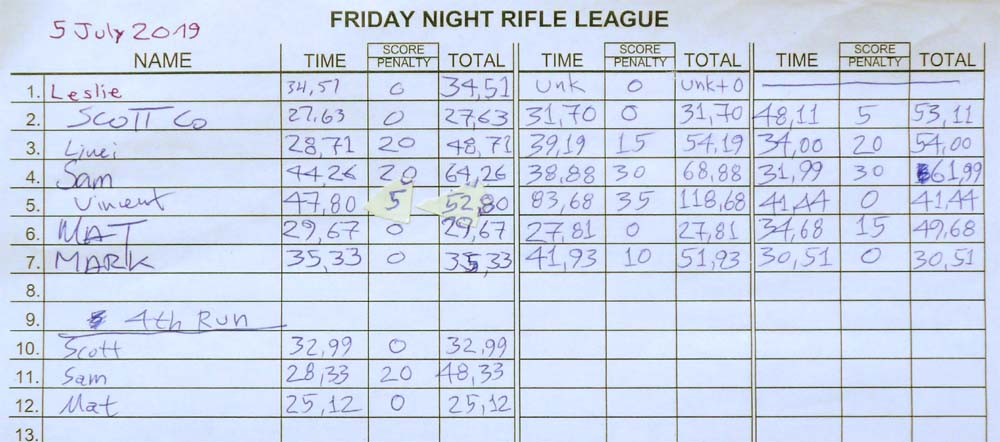 FRIDAY NIGHT RIFLE LEAGUE
5 July 2019
NAME TIME SCORE PENALTY TOTAL TIME SCORE PENALTY TOTAL TIME SCORE PENALTY TOTAL
1. Leslie 34,51 0 34,51 Unk 0 Unk+0
2. SCOTT CO 27,63 0 27,63 31,70 0 31,70 48,11 5 53,11
3. 28,71 20 48,71 39,19 15 54,19 34,00 20 54,00
4. Sam 44,26 20 64,26 38,88 30 68,88 31,99 30 61,99
5. Vincent 47,80 5 52,80 83,68 35 118,68 41,44 0 41,44
6. MAT 29,67 0 29,67 27,81 0 27,81 34,68 15 49,68
7. MARK 35,33 0 35,33 41,93 10 51,93 30,51 0 30,51
8.
9. 4th Run
10. Scott 32,99 0 32,99
11. Sam 28,33 20 48,33
12. Mat 25,12 0 25,12
13.